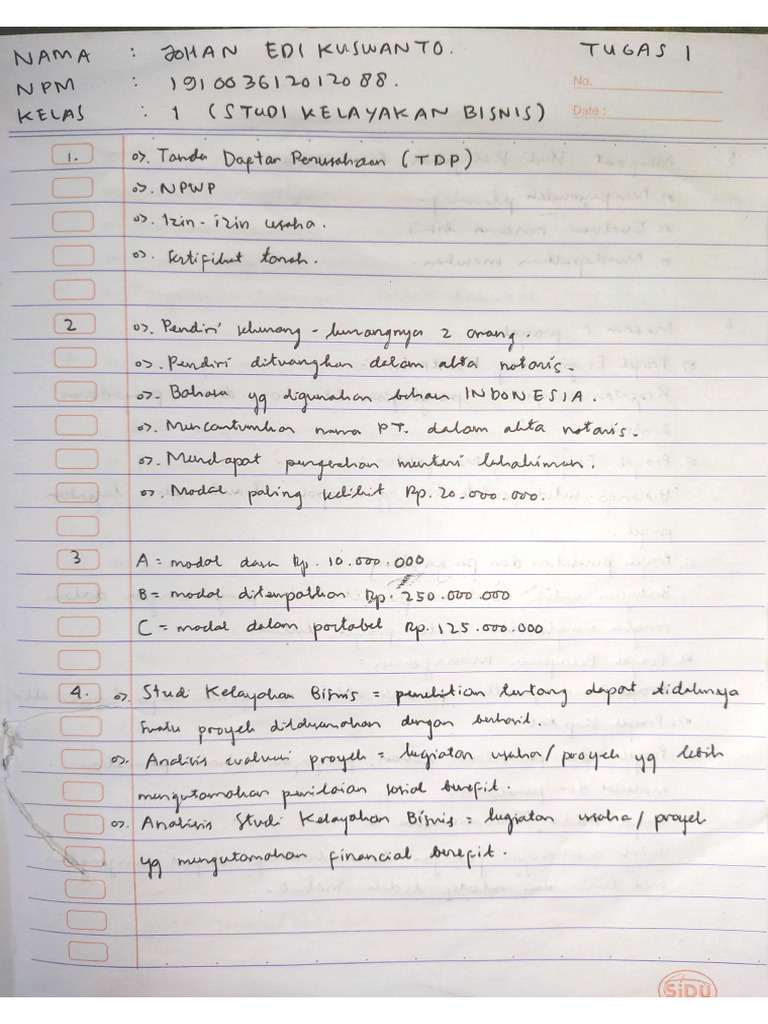 NAMA : JOHAN EDI KUSWANTO. TUGAS 1
NPM : 191003612012088. No.
KELAS : 1 (STUDI KELAYAKAN BISNIS) Date :
1. o>. Tanda Daptar Perusahaan (TDP)
o>. NPWP
o>. Izin - izin usaha.
o>. Sertifikat tanah.
2 o>. Pendiri sekurang - kurangnya 2 orang.
o>. Pendiri dituangkan dalam akta notaris.
o>. Bahasa yg digunakan bahasa INDONESIA.
o>. Mencantumkan nama PT. dalam akta notaris.
o>. Mendapat pengesahan menteri kehakiman.
o>. Modal paling sedikit Rp. 20.000.000.
3 A = modal dasar Rp. 10.000.000
B = modal ditempatkan Rp. 250.000.000
C = modal dalam portabel Rp. 125.000.000
4. o>. Studi Kelayakan Bisnis = penelitian tentang dapat tidaknya
suatu proyek dilaksanakan dengan berhasil.
o>. Analisis evaluasi proyek = kegiatan usaha / proyek yg lebih
mengutamakan penilaian sosial benefit.
o>. Analisis Studi Kelayakan Bisnis = kegiatan usaha / proyek
yg mengutamakan financial benefit.
SiDU